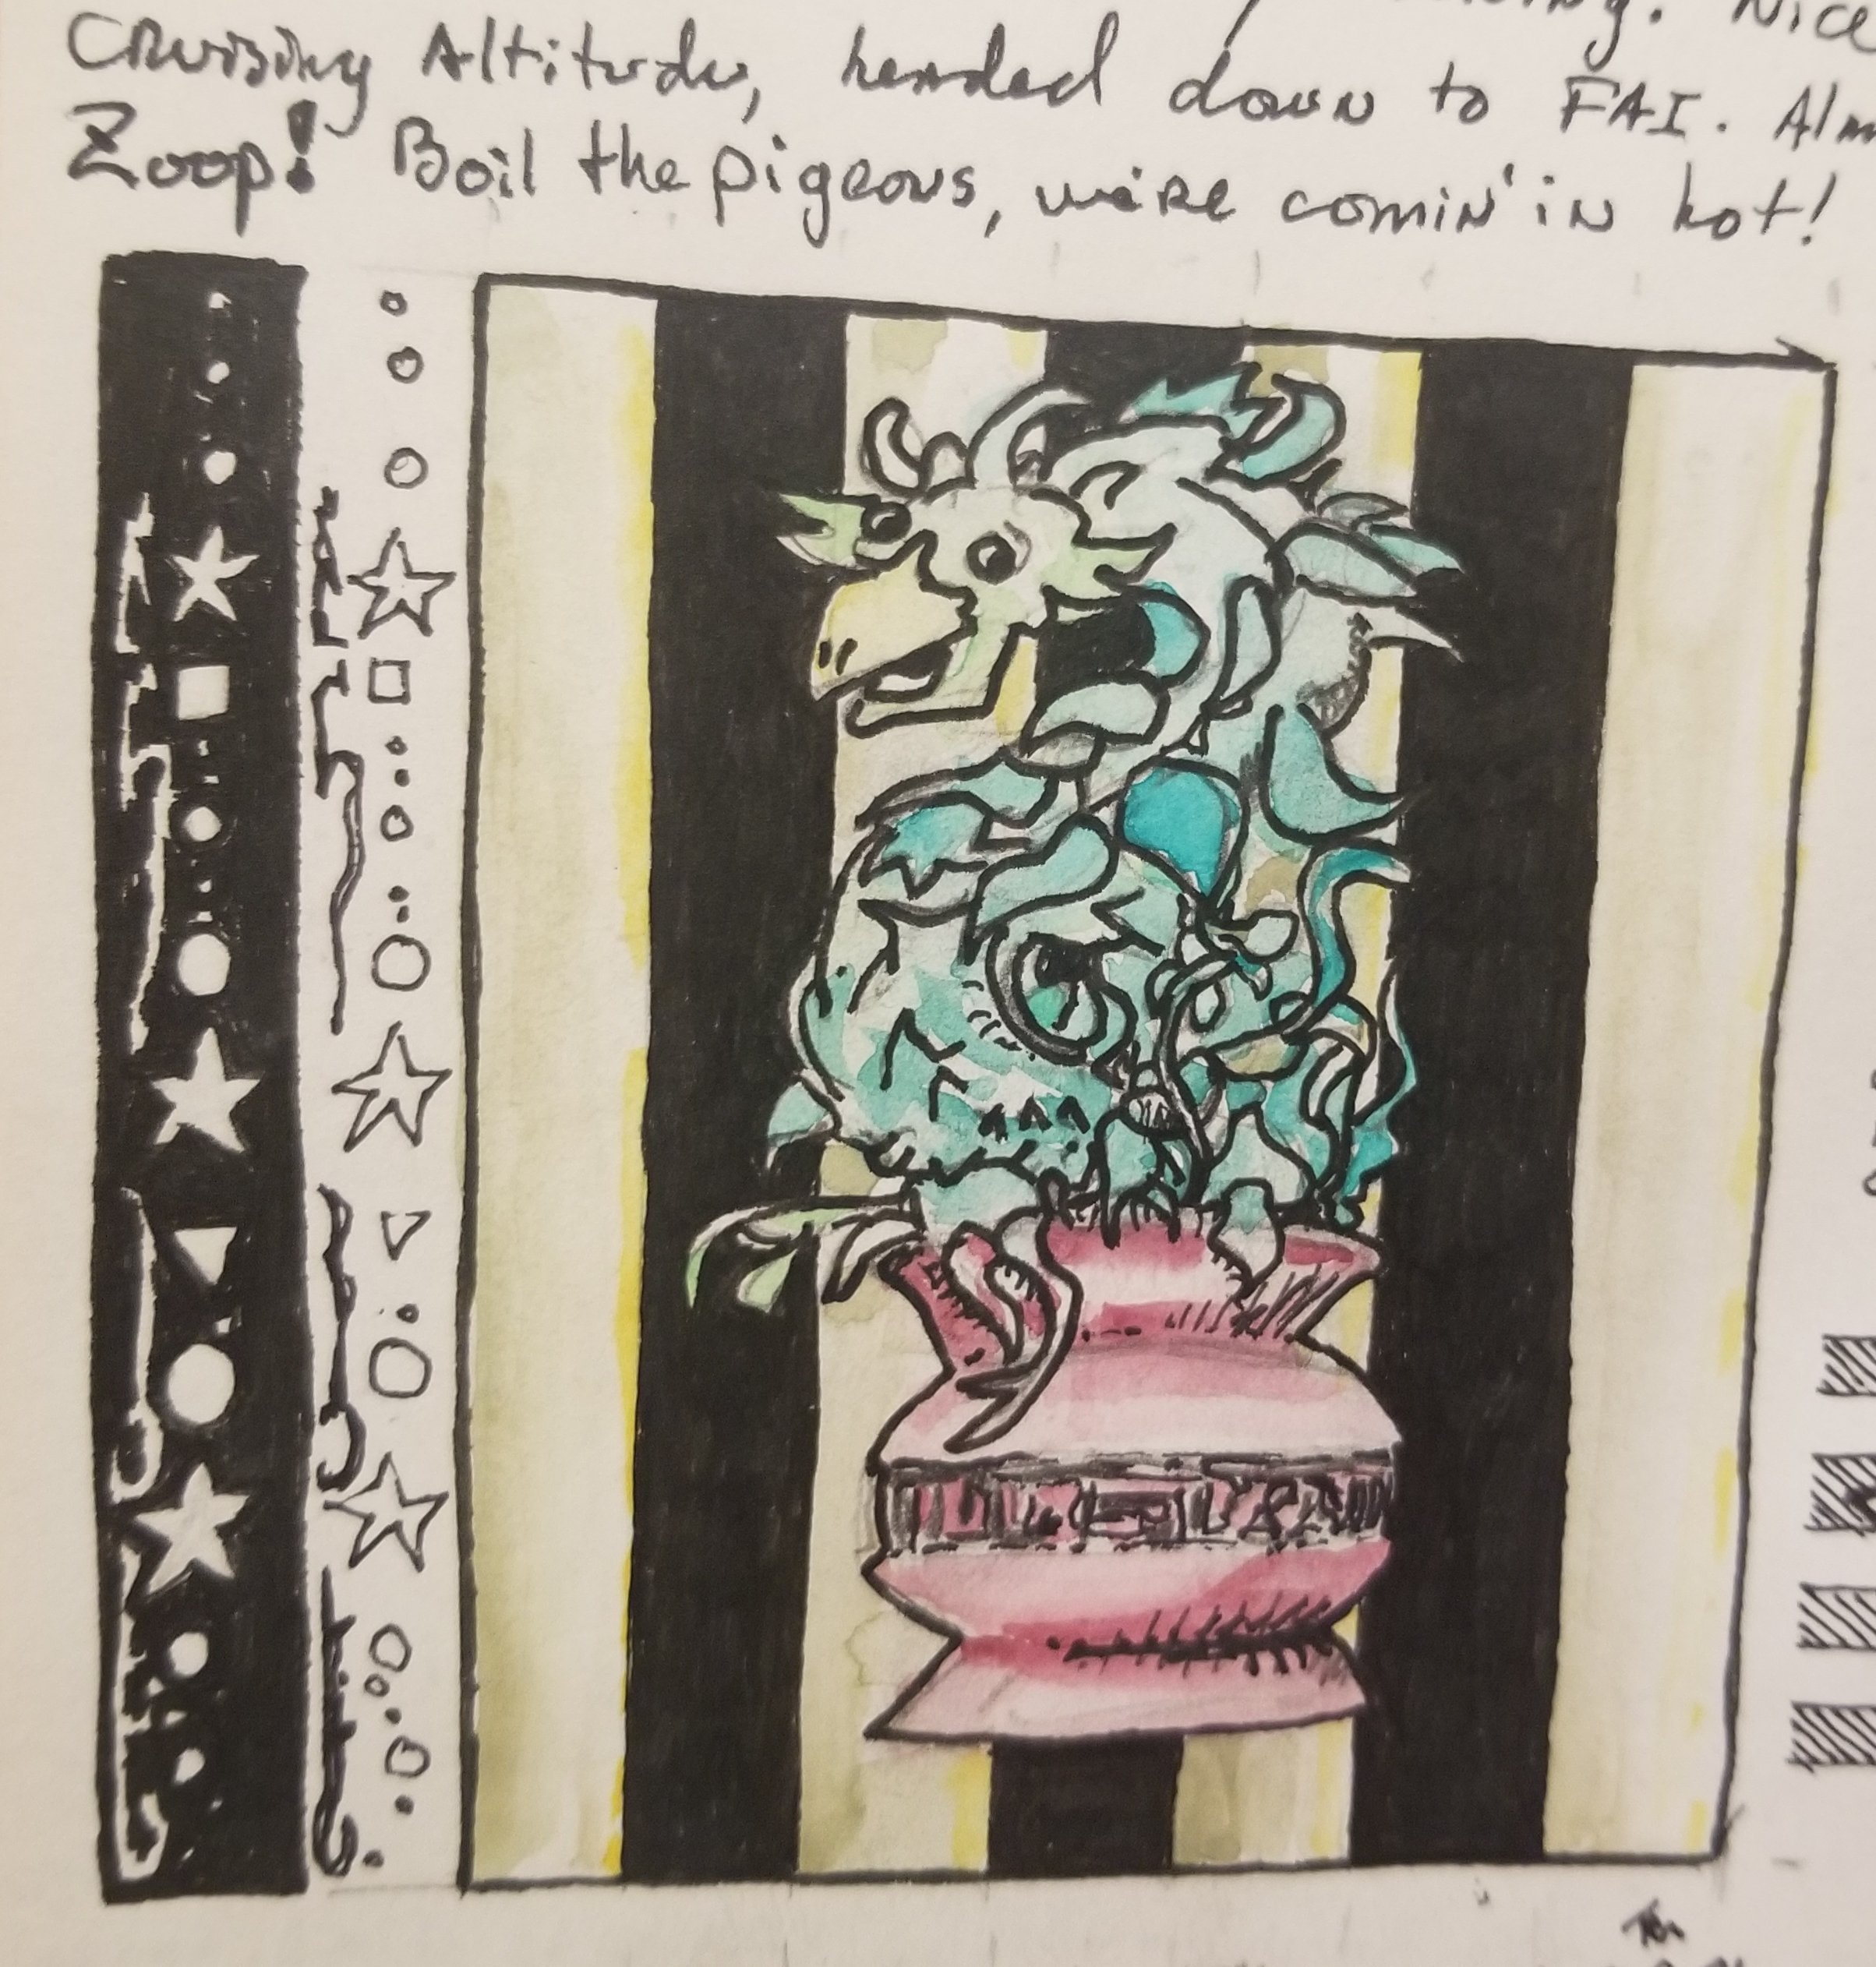 Nice
Cruising Altitude, headed down to FAI.
Zoop! Boil the pigeons, we're comin' in hot!